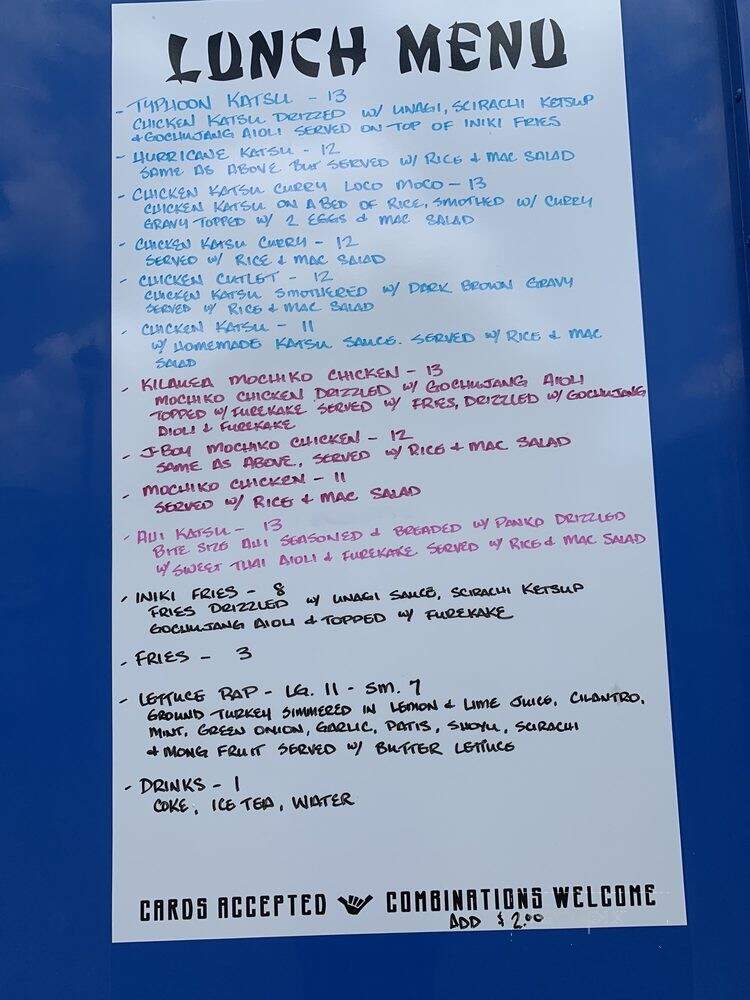 LUNCH MENU
- TYPHOON KATSU - 13
CHICKEN KATSU DRIZZED W/ UNAGI, SCIRACHI KETSUP
& GOCHUJANG AIOLI SERVED ON TOP OF INIKI FRIES
- HURRICANE KATSU - 12
SAME AS ABOVE BUT SERVED W/ RICE & MAC SALAD
- CHICKEN KATSU CURRY LOCO MOCO - 13
CHICKEN KATSU ON A BED OF RICE, SMOTHED W/ CURRY
GRAVY TOPPED W/ 2 EGGS & MAC SALAD
- CHICKEN KATSU CURRY - 12
SERVED W/ RICE & MAC SALAD
- CHICKEN CUTLET - 12
CHICKEN KATSU SMOTHERED W/ DARK BROWN GRAVY
SERVED W/ RICE & MAC SALAD
- CHICKEN KATSU - 11
W/ HOMEMADE KATSU SAUCE. SERVED W/ RICE & MAC
SALAD
- KILAUEA MOCHIKO CHICKEN - 13
MOCHIKO CHICKEN DRIZZLED W/ GOCHUJANG AIOLI
TOPPED W/ FUREKAKE SERVED W/ FRIES, DRIZZLED W/ GOCHUJANG
AIOLI & FUREKAKE
- J-BOY MOCHIKO CHICKEN - 12
SAME AS ABOVE, SERVED W/ RICE & MAC SALAD
- MOCHIKO CHICKEN - 11
SERVED W/ RICE & MAC SALAD
- AHI KATSU - 13
BITE SIZE AHI SEASONED & BREADED W/ PANKO DRIZZLED
W/ SWEET THAI AIOLI & FUREKAKE SERVED W/ RICE & MAC SALAD
- INIKI FRIES - 8
FRIES DRIZZLED W/ UNAGI SAUCE, SCIRACHI KETSUP
GOCHUJANG AIOLI & TOPPED W/ FUREKAKE
- FRIES - 3
- LETTUCE RAP - LG. 11 - SM. 7
GROUND TURKEY SIMMERED IN LEMON & LIME JUICE, CILANTRO,
MINT, GREEN ONION, GARLIC, PATIS, SHOYU, SCIRACHI
& MONG FRUIT SERVED W/ BUTTER LETTUCE
- DRINKS - 1
COKE, ICE TEA, WATER
CARDS ACCEPTED COMBINATIONS WELCOME
ADD $2.00